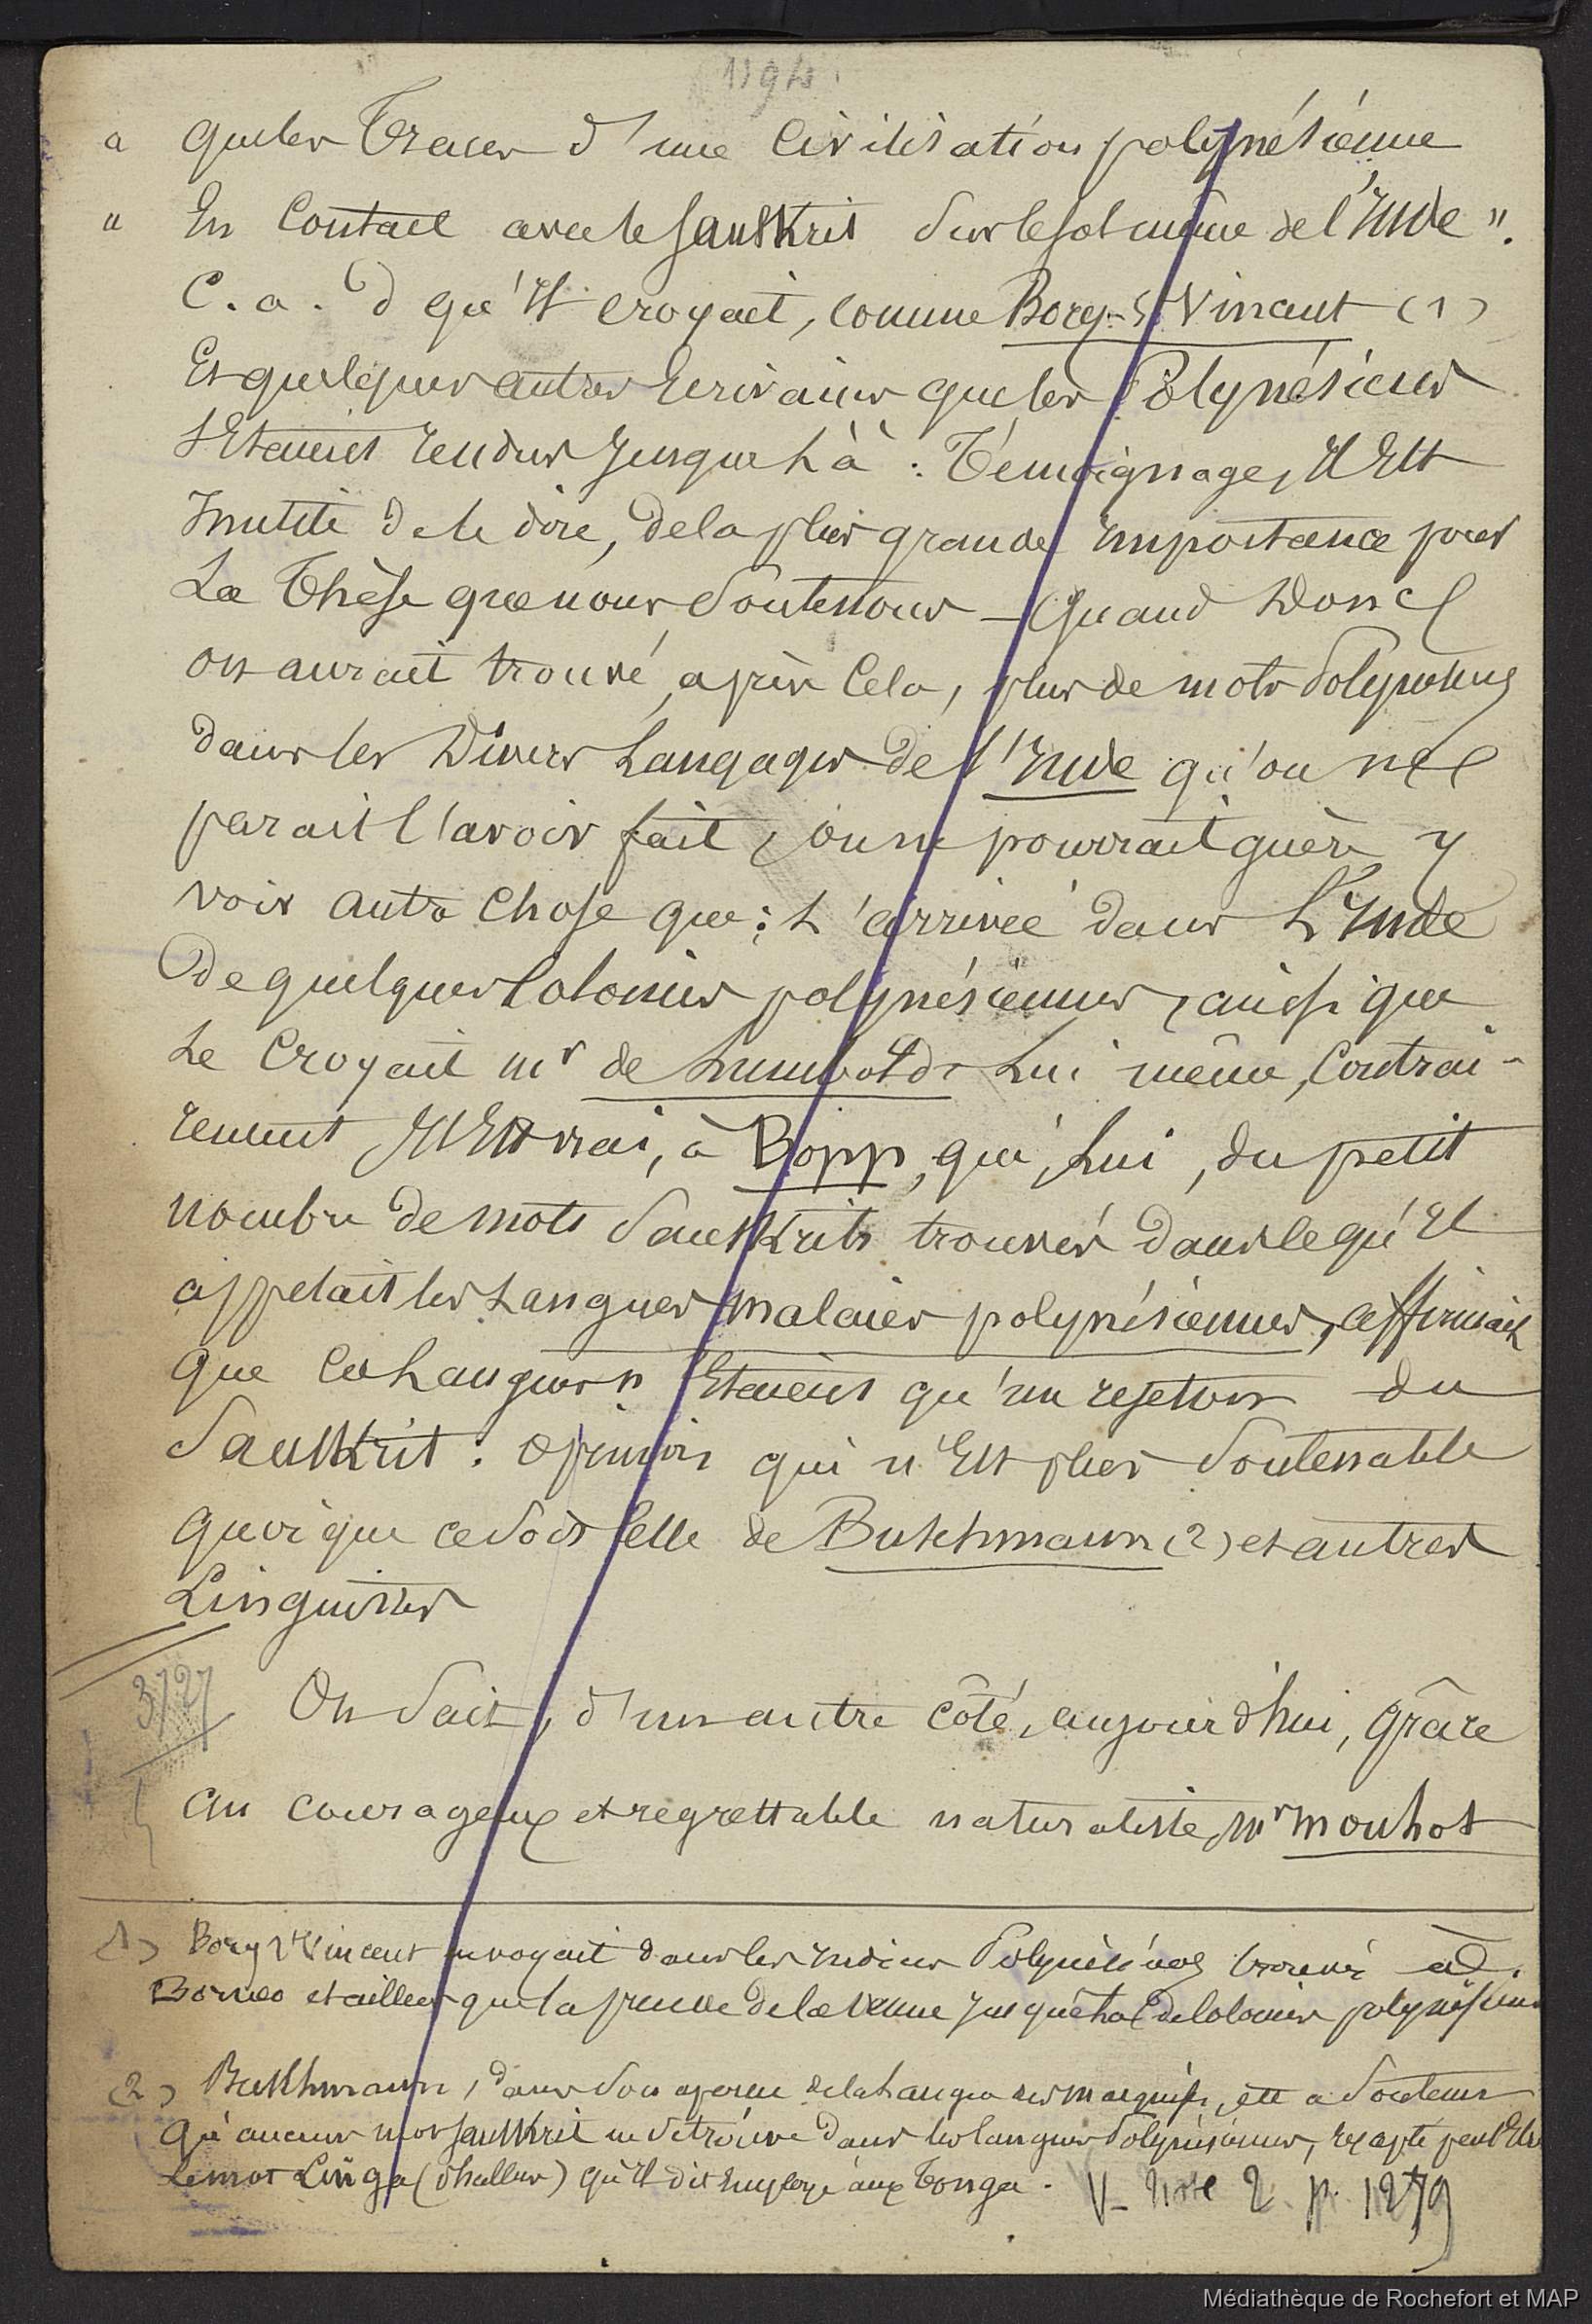 1194.
" que les traces d'une civilisation polynésienne
" En Contact avec le Sanskrit sur le sol même de l'Inde ".
C. a. d qu'Il croyait, comme Bory-St Vincent (1)
Et quelques autres Ecrivains que les Polynésiens
s'Etaient rendus jusque là : Témoignage, Il Est
Inutile de le dire, de la plus grande importance pour
La Thèse que nous soutenons — Quand Donc
on aurait trouvé, après Cela, plus de mots Polynésiens
dans les Divers Langages de l'Inde qu'on ne
parait l'avoir fait, on ne pourrait guère y
voir autre Chose que : L'arrivée dans L'Inde
De quelques Colonies polynésiennes, ainsi que
Le Croyait Mr de Humboldt Lui même, Contrai-
rement Il Est vrai, à Bopp, qui, Lui, du petit
nombre de mots Sanskrits trouvés dans le qu'Il
appelait les Langues malaies polynésiennes, affirmait
que Ces Langues n'Etaient qu'un rejeton du
Sanskrit : opinion qui n'Est plus soutenable
quoique ce soit celle de Buschmann (2) et autres
Linguistes
3727
On sait, d'un autre côté, aujourd'hui, grâce
au courageux et regrettable naturaliste, Mr Mouhot
(1) Bory St Vincent ne voyait dans les Indiens Polynésiens trouvés à
Borneo et ailleurs que la preuve de la venue jusque là de Colonies polynésiennes
(2) Buschmann, dans son aperçu de la Langue des Marquises, etc a soutenu
qu'aucun mot Sanskrit ne se trouve dans les langues Polynésiennes, Excepté peut Etre
Le mot Linga (Phallus) qu'Il dit Employé aux Tonga. V- note 2 p. 1279
Médiathèque de Rochefort et MAP